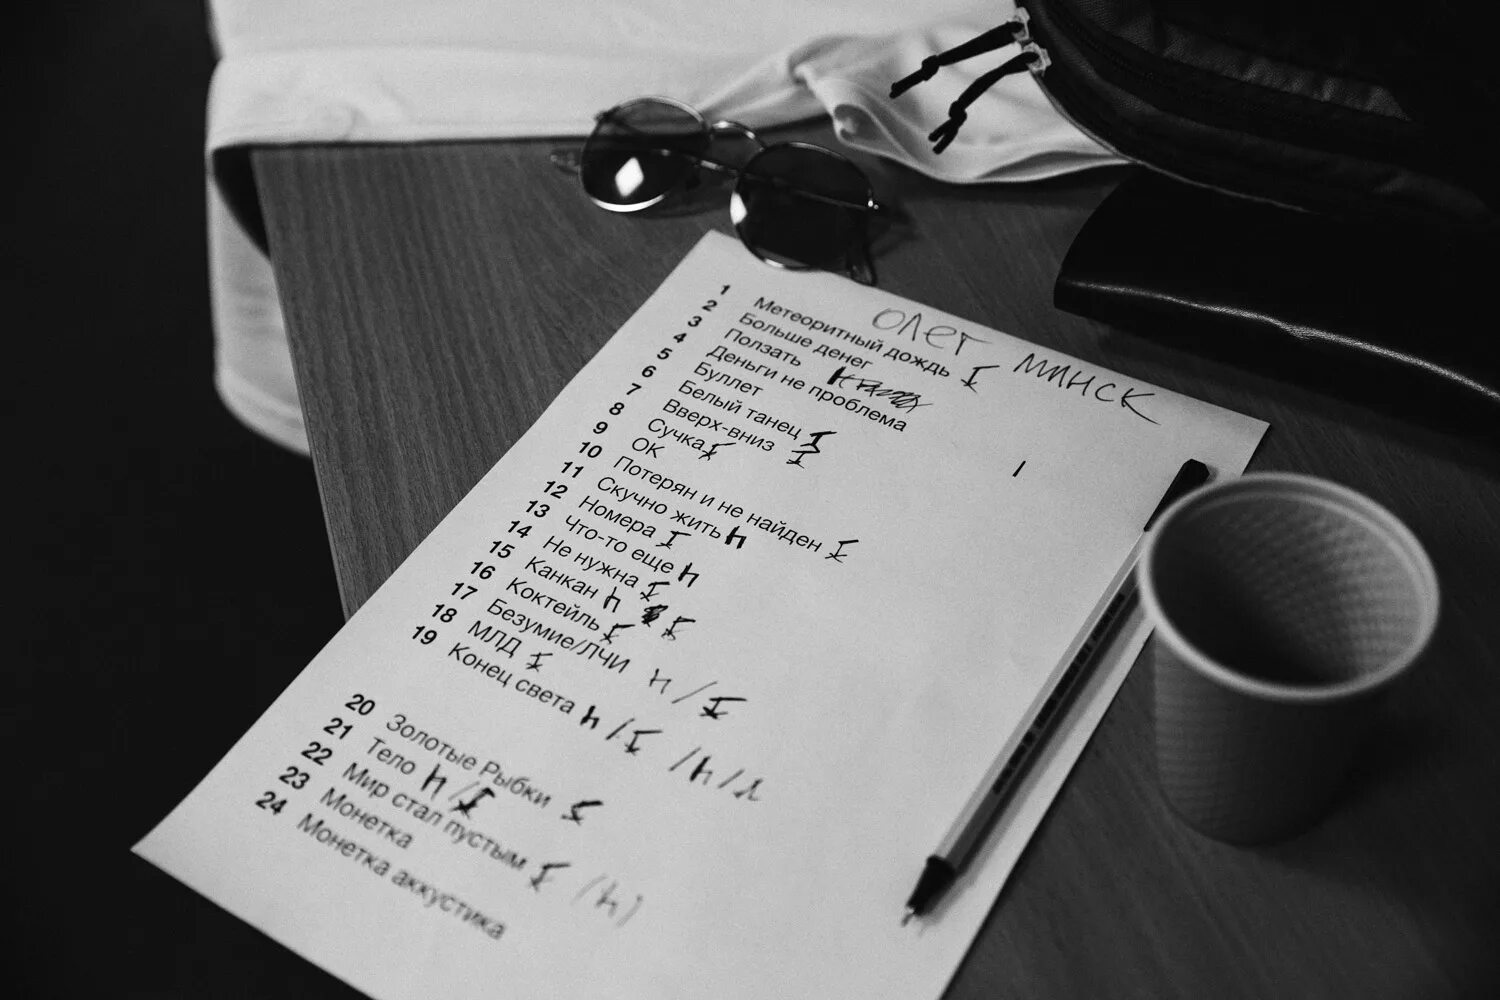 ОЛЕГ МИНСК
1 Метеоритный дождь I
2 Больше денег
3 Ползать
4 Деньги не проблема
5 Буллет
6 Белый танец I
7 Вверх-вниз I
8 Сучка I
9 ОК
10 Потерян и не найден I
11 Скучно жить h
12 Номера I
13 Что-то еще h
14 Не нужна I
15 Канкан h I
16 Коктейль I
17 Безумие/ЛЧИ h / I
18 МЛД I
19 Конец света h / I / h /
20 Золотые Рыбки
21 Тело h / I
22 Мир стал пустым I (h)
23 Монетка
24 Монетка аккустика